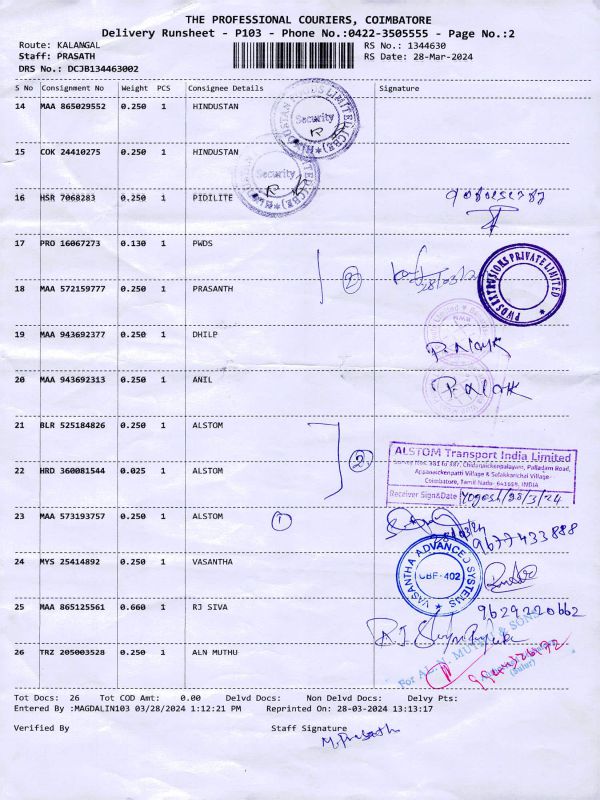 THE PROFESSIONAL COURIERS, COIMBATORE
Delivery Runsheet - P103 - Phone No.:0422-3505555 - Page No.:2
Route: KALANGAL
RS No.: 1344630
Staff: PRASATH
RS Date: 28-Mar-2024
DRS No.: DCJB134463002
S No Consignment No Weight PCS Consignee Details Signature
14 MAA 865029552 0.250 1 HINDUSTAN
Security
15 COK 24410275 0.250 1 HINDUSTAN
Security
16 HSR 7068283 0.250 1 PIDILITE
17 PRO 16067273 0.130 1 PWDS
2
28/03/2
PWDS EXTRUSIONS PRIVATE LIMITED
18 MAA 572159777 0.250 1 PRASANTH
19 MAA 943692377 0.250 1 DHILP
P. NAYK
20 MAA 943692313 0.250 1 ANIL
P. NAYK
21 BLR 525184826 0.250 1 ALSTOM
2
ALSTOM Transport India Limited
Survey Nos. 381 to 387, Chidanaickenpalayam, Palladam Road,
Appanaickenpatti Village & Selakkarichel Village
Coimbatore, Tamil Nadu- 641658, INDIA
Receiver Sign&Date Yogesh/28/3/24
22 HRD 360081544 0.025 1 ALSTOM
23 MAA 573193757 0.250 1 ALSTOM
1
28/03/24
9677433888
24 MYS 25414892 0.250 1 VASANTHA
VASANTHA ADVANCED SYSTEMS
CBF-402
25 MAA 865125561 0.660 1 RJ SIVA
9629220662
26 TRZ 205003528 0.250 1 ALN MUTHU
For AL. N. MUTHU & SONS
(Sulur)
Tot Docs: 26 Tot COD Amt: 0.00 Delvd Docs: Non Delvd Docs: Delvy Pts:
Entered By :MAGDALIN103 03/28/2024 1:12:21 PM Reprinted On: 28-03-2024 13:13:17
Verified By Staff Signature
M. Prasath